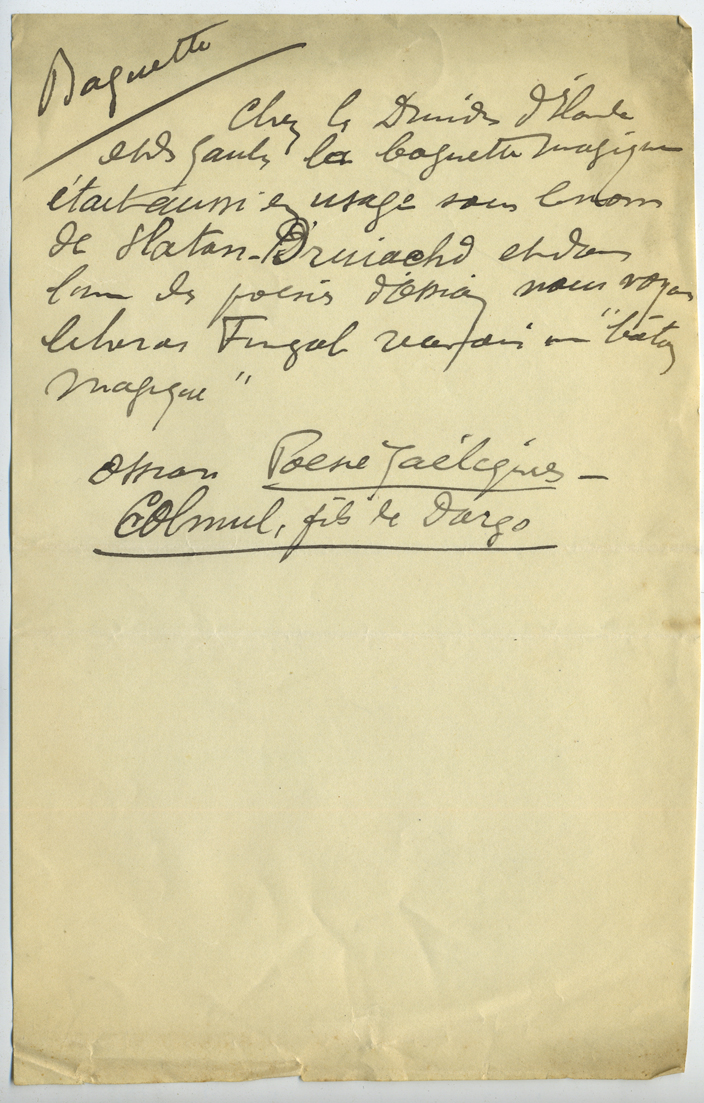 Baguette
Chez les Druides d'Irlande
et des Gaules la baguette magique
était aussi en usage sous le nom
de Slatan-Druiachd et dans
l'une des poésies d'Ossian nous voyons
le héros Fingal un "bâton
magique"
Ossian Poésies Gaéliques —
Colmul, fils de Dargo